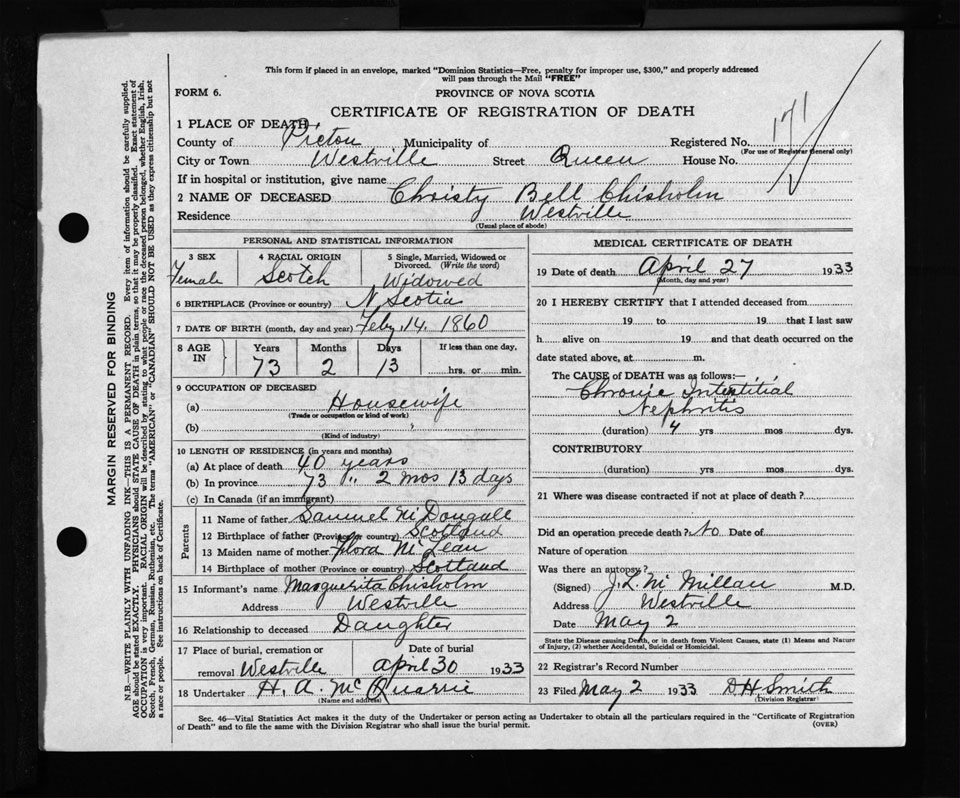 This form if placed in an envelope, marked "Dominion Statistics—Free, penalty for improper use, $300," and properly addressed
will pass through the Mail "FREE"
FORM 6. PROVINCE OF NOVA SCOTIA
CERTIFICATE OF REGISTRATION OF DEATH
1 PLACE OF DEATH
County of Pictou Municipality of Registered No. 171
(For use of Registrar General only)
City or Town Westville Street Queen House No.
If in hospital or institution, give name
2 NAME OF DECEASED Christy Bell Chisholm
Residence Westville
(Usual place of abode)
PERSONAL AND STATISTICAL INFORMATION
3 SEX 4 RACIAL ORIGIN 5 Single, Married, Widowed or
Divorced. (Write the word)
Female Scotch Widowed
6 BIRTHPLACE (Province or country) N Scotia
7 DATE OF BIRTH (month, day and year) Feby. 14. 1860
8 AGE IN Years Months Days If less than one day.
73 2 13 hrs. or min.
9 OCCUPATION OF DECEASED
(a) Housewife
(Trade or occupation or kind of work)
(b)
(Kind of industry)
10 LENGTH OF RESIDENCE (in years and months)
(a) At place of death 40 years
(b) In province 73 " 2 mos 13 days
(c) In Canada (if an immigrant)
Parents
11 Name of father Samuel Mc Dougall
12 Birthplace of father (Province or country) Scotland
13 Maiden name of mother Flora Mc Lean
14 Birthplace of mother (Province or country) Scotland
15 Informant's name Marguerita Chisholm
Address Westville
16 Relationship to deceased Daughter
17 Place of burial, cremation or Date of burial
removal Westville April 30 1933
18 Undertaker H. A. Mc Quarrie
(Name and address)
MEDICAL CERTIFICATE OF DEATH
19 Date of death April 27 1933
(Month, day and year)
20 I HEREBY CERTIFY that I attended deceased from
19 to 19 that I last saw
h alive on 19 and that death occurred on the
date stated above, at m.
The CAUSE of DEATH was as follows:—
Chronic Intestitial
Nephritis
(duration) 4 yrs mos dys.
CONTRIBUTORY
(duration) yrs mos dys.
21 Where was disease contracted if not at place of death?
Did an operation precede death? No Date of
Nature of operation
Was there an autopsy?
(Signed) J. L. Mc Millan M.D.
Address Westville
Date May 2
State the Disease causing Death, or in death from Violent Causes, state (1) Means and Nature
of Injury, (2) whether Accidental, Suicidal or Homicidal.
22 Registrar's Record Number
23 Filed May 2 1933 D H Smith
(Division Registrar)
Sec. 46—Vital Statistics Act makes it the duty of the Undertaker or person acting as Undertaker to obtain all the particulars required in the "Certificate of Registration
of Death" and to file the same with the Division Registrar who shall issue the burial permit. (OVER)
MARGIN RESERVED FOR BINDING
N.B.—WRITE PLAINLY WITH UNFADING INK—THIS IS A PERMANENT RECORD. Every item of information should be carefully supplied.
AGE should be stated EXACTLY. PHYSICIANS should STATE CAUSE OF DEATH in plain terms, so that it may be properly classified. Exact statement of
OCCUPATION is very important. RACIAL ORIGIN will be described by stating to what people or race the deceased person belonged, whether English, Irish,
Scotch, French, German, Russian, Ruthenian, etc. The terms "AMERICAN" or "CANADIAN" SHOULD NOT BE USED as they express citizenship but not
a race or people. See instructions on back of Certificate.